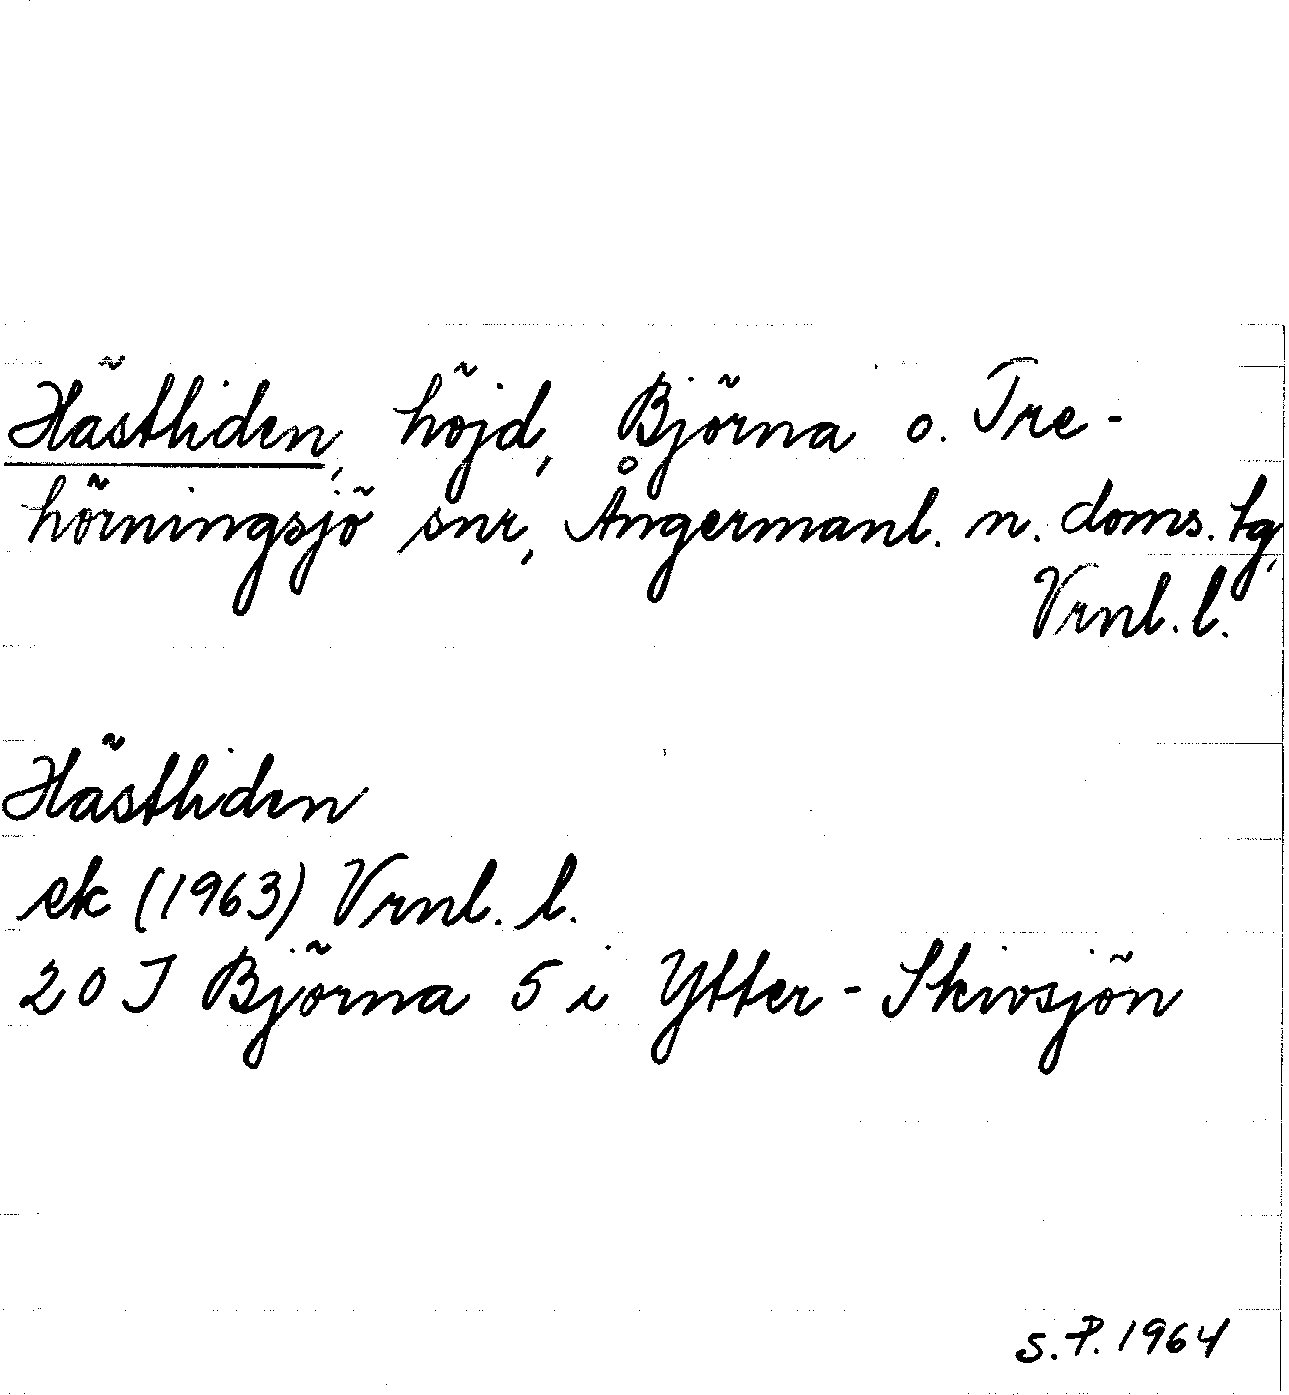 Hästliden, höjd, Björna o. Tre-
hörningsjö snr, Ångermanl. n. doms. tg,
Vrnl. l.
Hästliden
ek (1963) Vrnl. l.
20 J Björna 5 i Ytter-Skivsjön
S.P. 1964